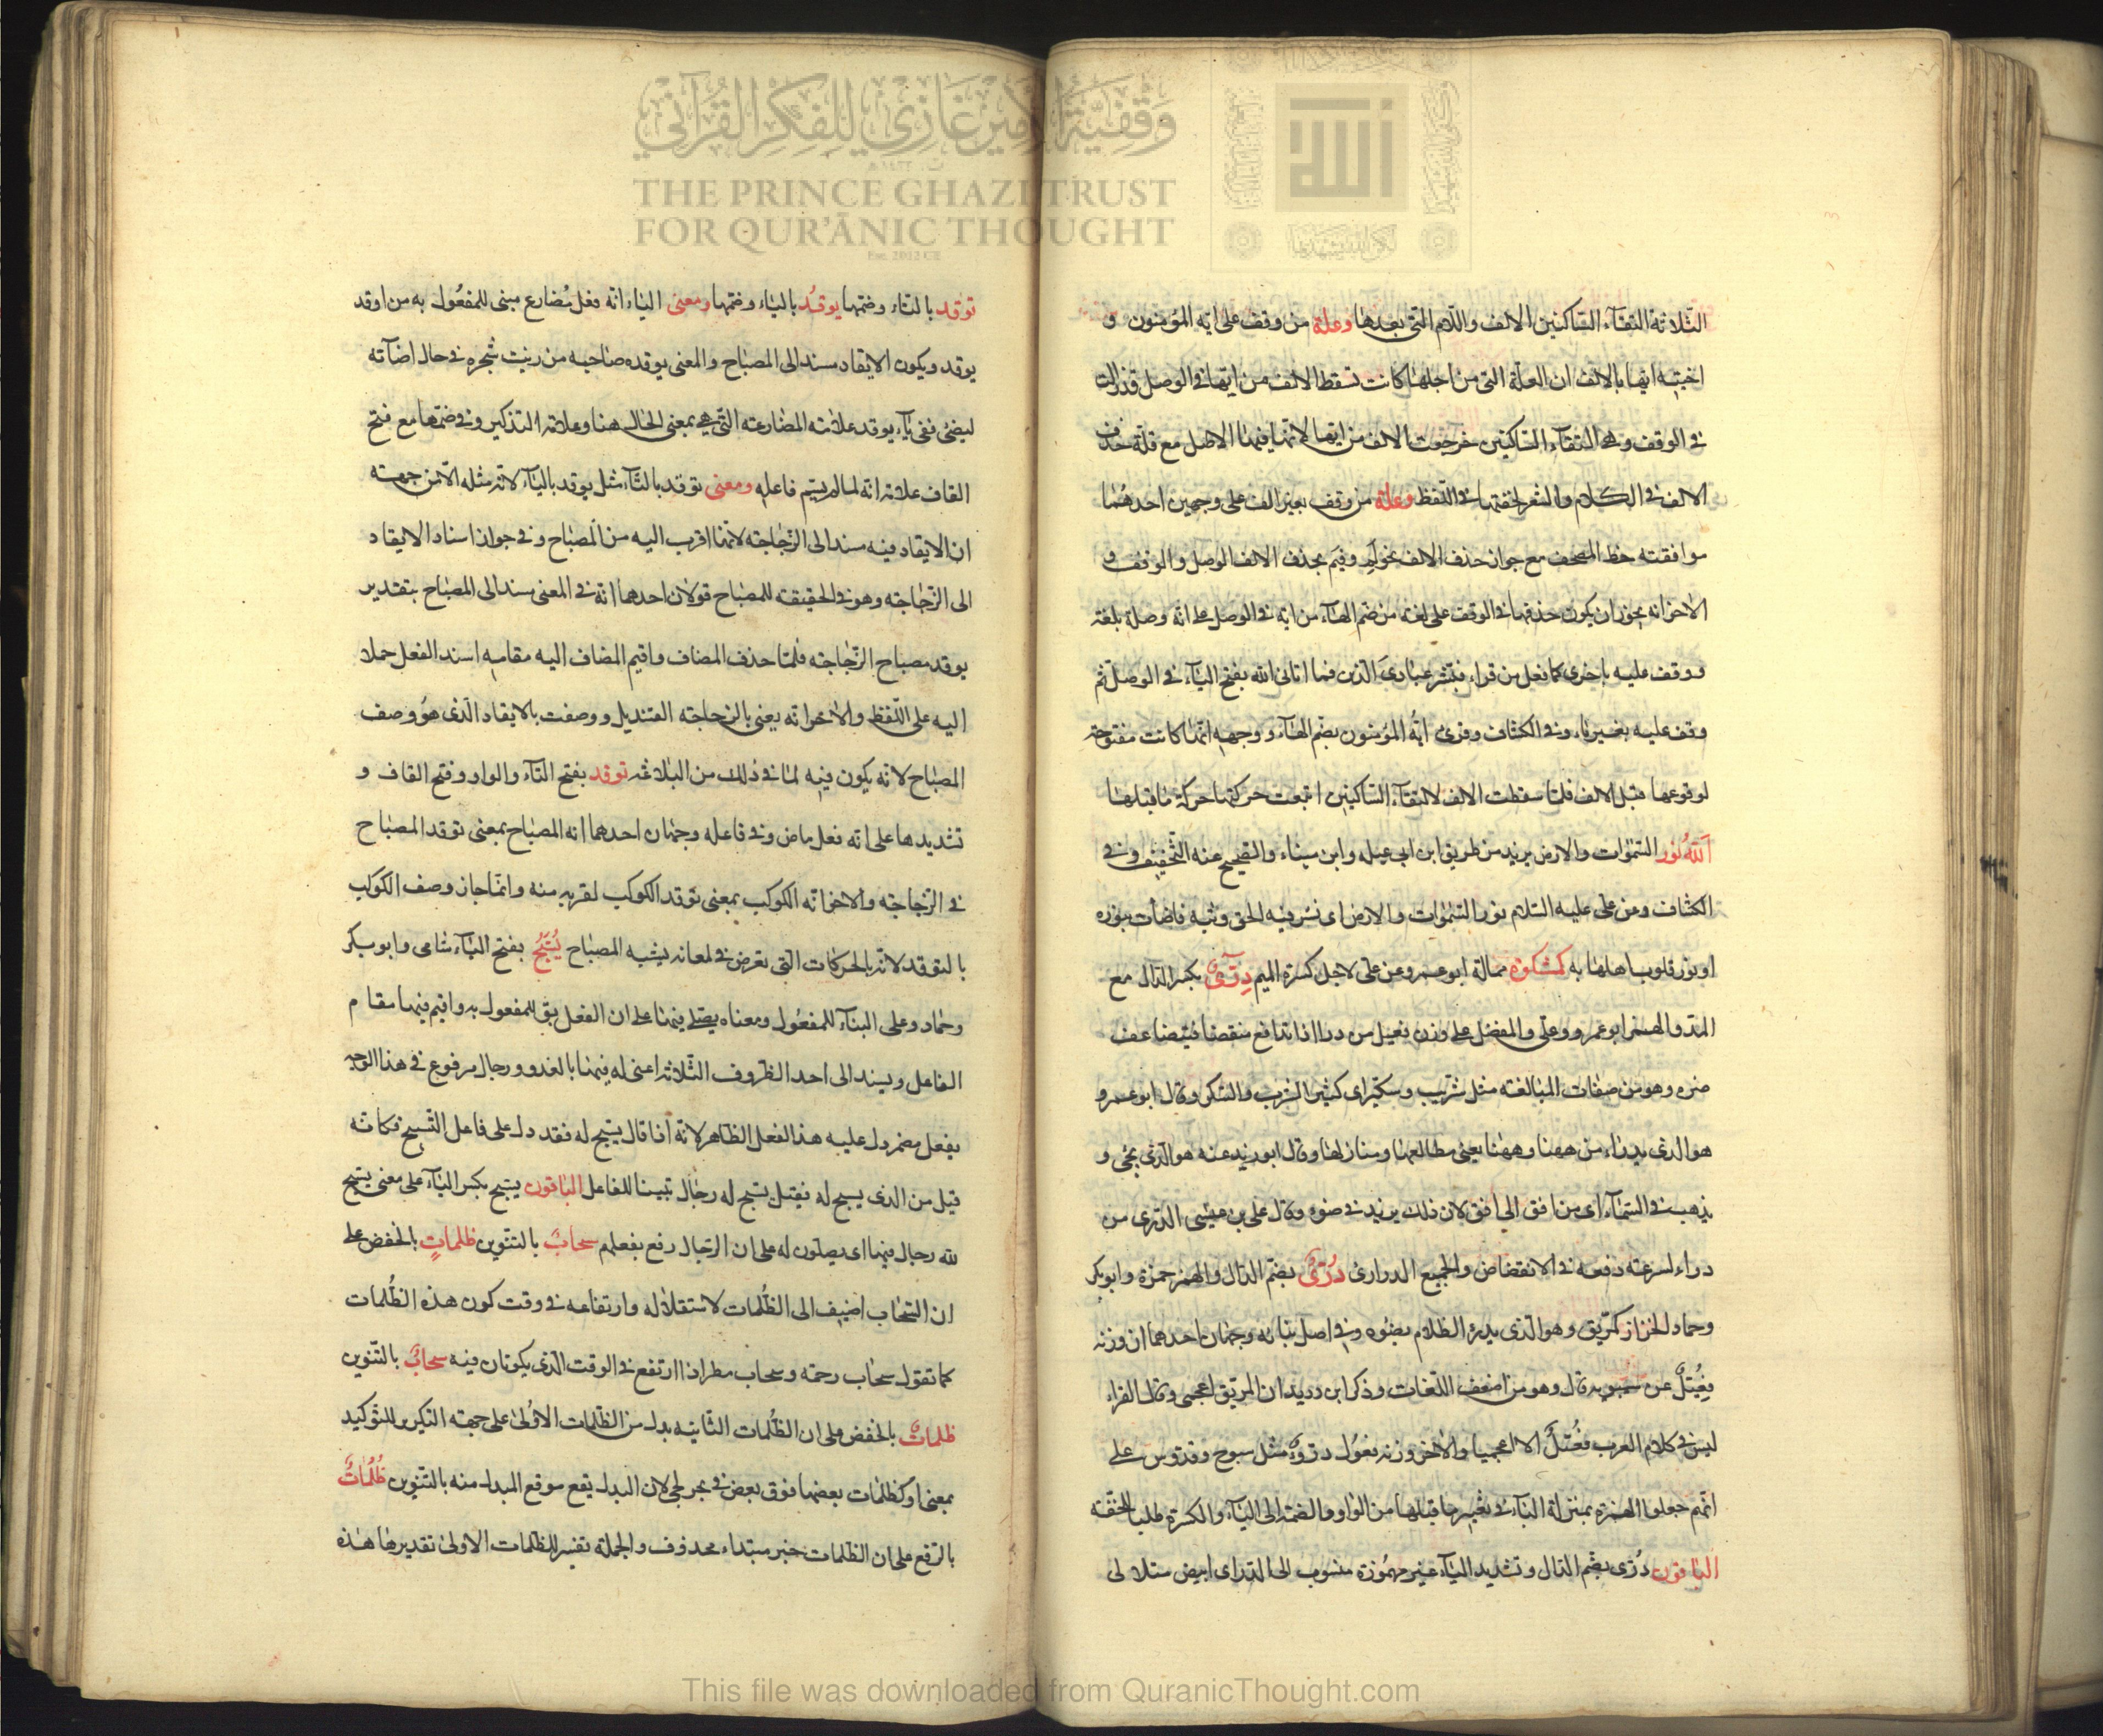 وقفية الأمير غازي للفكر القرآني
THE PRINCE GHAZI TRUST
FOR QUR'ĀNIC THOUGHT
Est. 2012 CE
الثلاثة التقاء الساكنين الالف واللام التى بعدها وعلة من وقف على ايه المؤمنون و
اختيه ايها بالالف ان العلة التى من اجلها كانت تسقط الالف من ايها فى الوصل قد زالت
فى الوقف وهى التقاء الساكنين فرجعت الالف من ايها لانها فيها الاصل مع قلة حذف
الالف فى الكلام والشعر لخفتها فى اللفظ وعلة من وقف بغير الف على وجهين احدهما
موافقته خط المصحف مع جواز حذف الالف نحو لم وفيم بحذف الالف الوصل والوقف و
الاخر انه يجوز ان يكون حذفها فى الوقف على لغة من ضم الهاء من ايه فى الوصل على انه وصله بلغة
ووقف عليه باخرى كما فعل من قراء فبشر عبادى الذين فما اتانى الله بفتح الياء فى الوصل ثم
وقف عليه بغير ياء وفى الكشاف وقرئ ايه المؤمنون بضم الهاء ووجهه انها كانت مفتوحة
لوقوعها قبل الالف فلما سقطت الالف لالتقاء الساكنين اتبعت حركتها حركة ما قبلها
الله نور السموات والارض يزيد من طريق ابن ابى عبله وابن سيناء والصحيح عنه التخفيف وفى
الكشاف وعن على عليه السلام نور السموات والارض اى نشر فيه الحق وبثه فاضأت بنوره
او نور قلوب اهلها به كمشكوة ممالة ابو عمرو عن على لاجل كسرة الميم درئ بكسر الدال مع
المد والهمز ابو عمرو وعلى والمفضل على وزن فعيل من درا اذا تدافع منقضا فيتضاعف
ضوه وهو من صفات المبالغة مثل شريب وسكير اى كثير الشرب والسكر وقال ابو عمرو
هو الذى يدراء من ههنا وههنا يعنى مطالعها ومنازلها وقال ابو زيد عنه هو الذى يجئ و
يذهب فى السماء اى من افق الى افق لان ذلك يزيد فى ضوه وقال على بن عيسى الدرى من
دراء لسرعة دفعه فى الانقضاض والجمع الدرارئ درئ بضم الدال والهمز حمزة وابو بكر
وحماد الخزاز كمريق وهو الذى يدرئ الظلام بضوه وفى اصل بنائه وجهان احدهما ان وزنه
فعيل عن سيبويه قال وهو من اضعف اللغات وذكر ابن دريد ان المريق اعجمى وقال الفراء
ليس فى كلام العرب فعيل الا اعجميا والاخر وزنه فعول دروء مثل سبوح وقدوس على
انهم جعلوا الهمزة بمنزلة الياء فى تغيير ما قبلها من الواو والضمة الى الياء والكسرة طلبا للخفة
الباقون درى بضم الدال وتشديد الياء غير مهموزة منسوب الى الدر اى ابيض متلالى
توقد بالتاء وضمها يوقد بالياء وضمها ومعنى الياء انه فعل مضارع مبنى للمفعول به من اوقد
يوقد ويكون الايقاد مسندا الى المصباح والمعنى يوقده صاحبه من زيت شجره فى حال اضآته
ليضئ ففى ياء يوقد علامة المضارعة التى هى بمعنى الحال هنا وعلامة التذكير وفى ضمها مع فتح
القاف علامة انه لما لم يسم فاعله ومعنى توقد بالتاء مثل يوقد بالياء لانه مثله الا من جهة
ان الايقاد فيه مسند الى الزجاجة لانها اقرب اليه من المصباح وفى جواز اسناد الايقاد
الى الزجاجة وهو فى الحقيقة للمصباح قولان احدهما انه فى المعنى مسند الى المصباح بتقدير
يوقد مصباح الزجاجة فلما حذف المضاف واقيم المضاف اليه مقامه اسند الفعل حملا
اليه على اللفظ والاخر انه يعنى بالزجاجة القنديل ووصفت بالايقاد الذى هو وصف
المصباح لانه يكون فيه لما فى ذلك من البلاغة توقد بفتح التاء والواو وفتح القاف و
تشديدها على انه فعل ماض وفى فاعله وجهان احدهما انه المصباح بمعنى توقد المصباح
فى الزجاجة والاخر انه الكوكب بمعنى توقد الكوكب لقربه منه وانما جاز وصف الكوكب
بالتوقد لانه بالحركات التى تعرض فى لمعانه يشبه المصباح يسبح بفتح الباء شامى وابو بكر
وحماد وعلى البناء للمفعول ومعناه يصلى فيها على ان الفعل بنى للمفعول به واقيم فيها مقام
الفاعل ويسند الى احد الظروف الثلاثة اعنى له فيها بالغدو ورجال مرفوع فى هذا الوجه
بفعل مضمر دل عليه هذا الفعل الظاهر لانه اذا قال يسبح له فقد دل على فاعل التسبيح فكانه
قيل من الذى يسبح له فقيل يسبح له رجال تبيينا للفاعل الباقون يسبح بكسر الباء على معنى يسبح
لله رجال فيها اى يصلون له على ان الرجال رفع بفعلهم سحاب بالتنوين ظلمات بالخفض على
ان السحاب اضيف الى الظلمات لاستقلاله وارتفاعه فى وقت كون هذه الظلمات
كما تقول سحاب رحمة وسحاب مطر اذا ارتفع فى الوقت الذى يكونان فيه سحاب بالتنوين
ظلمات بالخفض على ان الظلمات الثانيه بدل من الظلمات الاولى على جهة التكرير للتوكيد
بمعنى او كظلمات بعضها فوق بعض فى بحر لجى لان البدل يقع موقع المبدل منه بالتنوين ظلمات
بالرفع على ان الظلمات خبر مبتداء محذوف والجملة تفسير للظلمات الاولى تقديرها هذه
This file was downloaded from QuranicThought.com